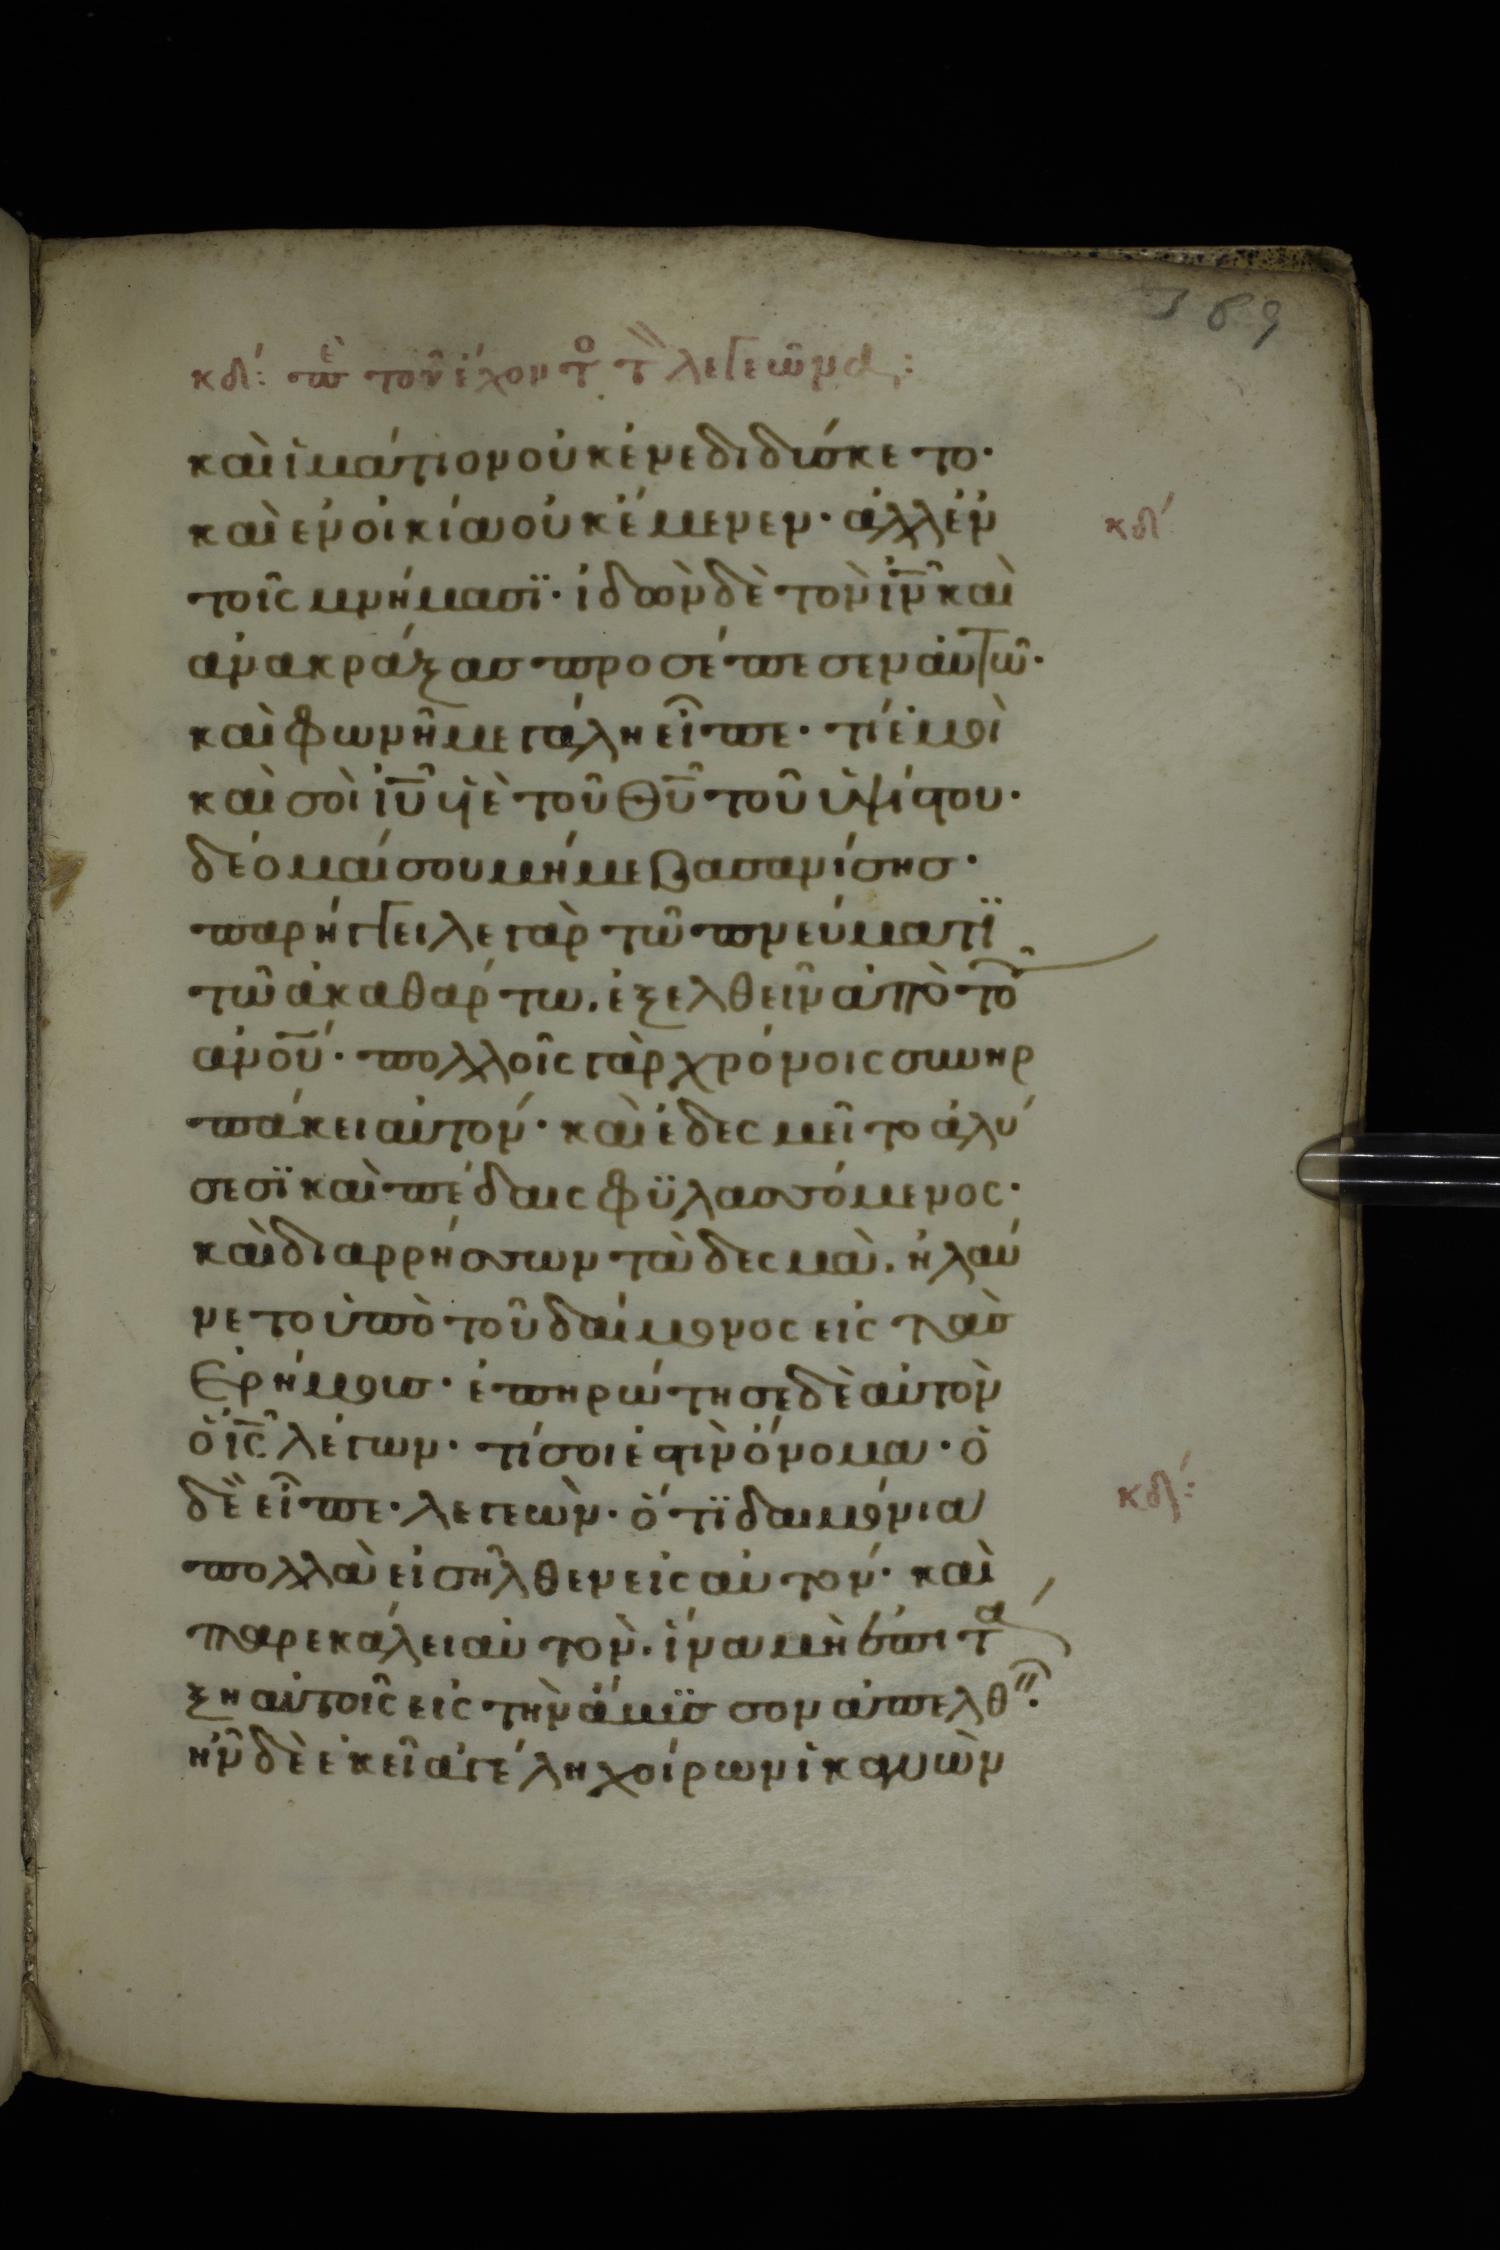 169
κδ΄: πε τοῦ ἔχοντο τ λεγεῶνα:
καὶ ἱμάτιον οὐκ ἐνεδιδύσκετο·
καὶ ἐν οἰκία οὐκ ἔμενεν· ἀλλ ἐν
κδ΄
τοῖς μνήμασϊ· ἰδὼν δὲ τὸν ἰν καὶ
ἀνακράξας προσέπεσεν αὐτῶ·
καὶ φωνῆ μεγάλη εἶπε· τί ἐμοὶ
καὶ σοὶ ἰυ ὑὲ τοῦ θυ τοῦ ὑψίστου·
δέομαί σου μή με βασανίσης·
παρήγγειλε γὰρ τῶ πνεύματϊ
τῶ ἀκαθάρτω. ἐξελθεῖν ἀπὸ τοῦ
ἀνου· πολλοῖς γὰρ χρόνοις συνηρ
πάκει αὐτόν· καὶ ἐδεσμεῖτο ἁλύ
σεσϊ καὶ πέδαις φϋλασσόμενος·
καὶ διαρρήσσων τὰ δεσμὰ. ἠλαύ
νετο ὑπὸ τοῦ δαίμονος εἰς τὰς
ἐρήμους· ἐπηρώτησε δὲ αὐτὸν
ὁ ις λέγων· τί σοι ἐστὶν ὄνομα· ὁ
δὲ εἶπε· λεγεὼν· ὅτϊ δαιμόνια
κδ΄:
πολλὰ εἰσῆλθεν εἰς αὐτόν· καὶ
παρεκάλει αὐτὸν. ἵνα μὴ ἐπιτά
ξη αὐτοῖς εἰς τὴν ἄμϋσσον ἀπελθ
ἦν δὲ ἐκεῖ ἀγέλη χοίρων ἱκανῶν